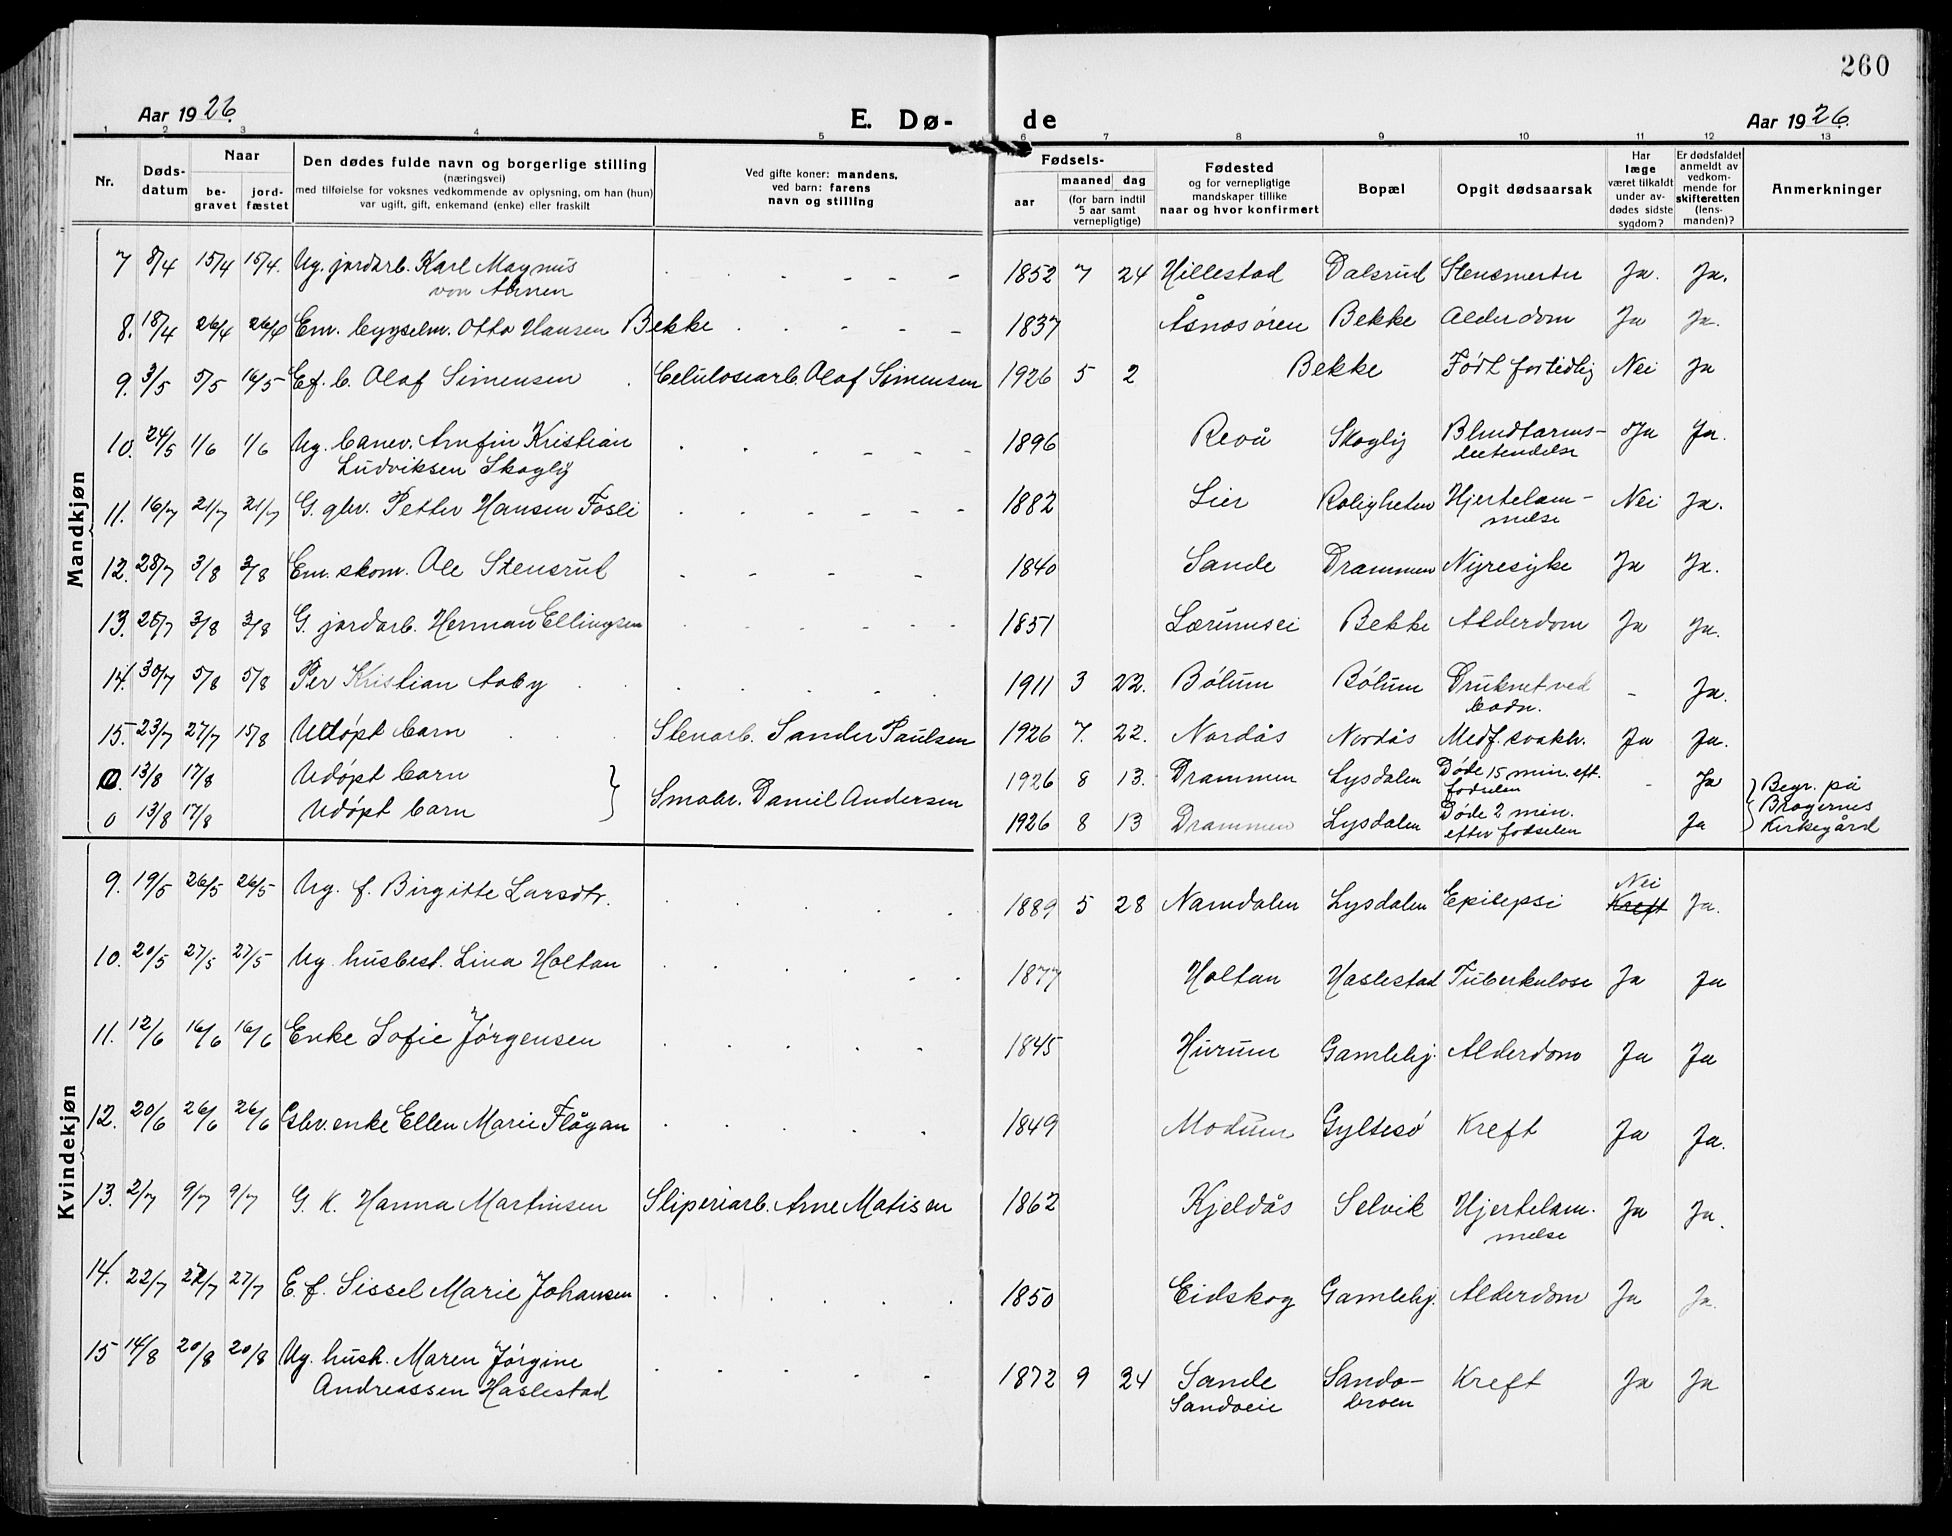 260
Aar 1926. E. Dø- de Aar 1926.
1 2 3 4 5 6 7 8 9 10 11 12 13
Nr. Døds-datum Naar be-gravet jord-fæstet Den dødes fulde navn og borgerlige stilling (næringsvei) med tilføielse for voksnes vedkommende av oplysning, om han (hun) var ugift, gift, enkemand (enke) eller fraskilt Ved gifte koner: mandens, ved barn: farens navn og stilling Fødsels- aar maaned dag (for barn indtil 5 aar samt vernepligtige) Fødested og for vernepligtige mandskaper tillike naar og hvor konfirmert Bopæl Opgit dødsaarsak Har læge været tilkaldt under av-dødes sidste sygdom? Er dødsfaldet anmeldt av vedkom-mende for skifteretten (lens-manden)? Anmerkninger
Mandkjøn
7 8/4 15/4 15/4. Ug. jordarb. Karl Magnus 1852 7 24 Hillestad Dalsrud Stensmerter Ja. Ja.
von Ahnen
8. 18/4 26/4 26/4 Em. bygselm. Otto Hansen Bekke 1837 Åsnesøren Bekke Alderdom Ja Ja.
9. 3/5 5/5 16/5 Ef. b. Olaf Simensen Celulosearb. Olaf Simensen 1926 5 2 Bekke Født fortidlig Nei Ja
10. 24/5 1/6 1/6 Ug. banev. Arnfin Kristian 1896 Revå Skogly Blindtarms- Ja Ja.
Ludviksen Skogly betendelse
11. 16/7 21/7 21/7 G. gbr. Petter Hansen Fosli 1882 Lier Roligheten Hjertelam- Nei Ja.
melse
12. 28/7 3/8 3/8 Em. skom. Ole Stensrud 1840 Sande Drammen Nyresyke Ja Ja.
13. 25/7 3/8 3/8 G. jordarb. Herman Ellingsen 1851 Lærumsei Bekke Alderdom Ja Ja.
14. 30/7 5/8 5/8 Per Kristian Aaby 1911 3 22. Bølum Bølum Druknet ved - Ja.
badn.
15. 23/7 27/7 15/8 Udøpt barn Stenarb. Sander Paulsen 1926 7. 22. Nordås Nordås Medf. svakh. Ja Ja.
0. 13/8 17/8 Udøpt barn 1926 8 13. Drammen Lysdalen Døde 15 min. eft. fødselen - Ja Begr. på
0 13/8 17/8 Udøpt barn Småbr. Daniel Andersen 1926 8 13 Drammen Lysdalen Døde 2 min. efter fødselen Ja Bragernes Kirkegård
Kvindekjøn
9. 19/5 26/5 26/5 Ug. f. Birgitte Larsdtr. 1889 5 28 Namdalen Lysdalen Epilepsi Nei Kreft Ja.
10. 20/5 27/5 27/5 Ug. husbest. Lina Holtan 1877 Holtan Haslestad Tuberkulose Ja Ja
11. 12/6 16/6 16/6 Enke Sofie Jørgensen 1845 Hurum Gamlehj. Alderdom Ja Ja
12. 20/6 26/6 26/6 Gbr. enke Ellen Marie Flågan 1849 Modum Gyltesø Kreft Ja Ja.
13. 2/7 9/7 9/7 G. K. Hanna Martinsen Sliperiarb. Arne Matisen 1862 Kjeldås Selvik Hjertelam- Ja Ja.
melse
14. 22/7 27/7 27/7 E. f. Sissel Marie Johansen 1850 Eidskog Gamlehj. Alderdom Ja Ja.
15 14/8 20/8 20/8 Ug. hush. Maren Jørgine 1872 9 24 Sande Sande- Kreft Ja Ja
Andreassen Haslestad Sandveie broen